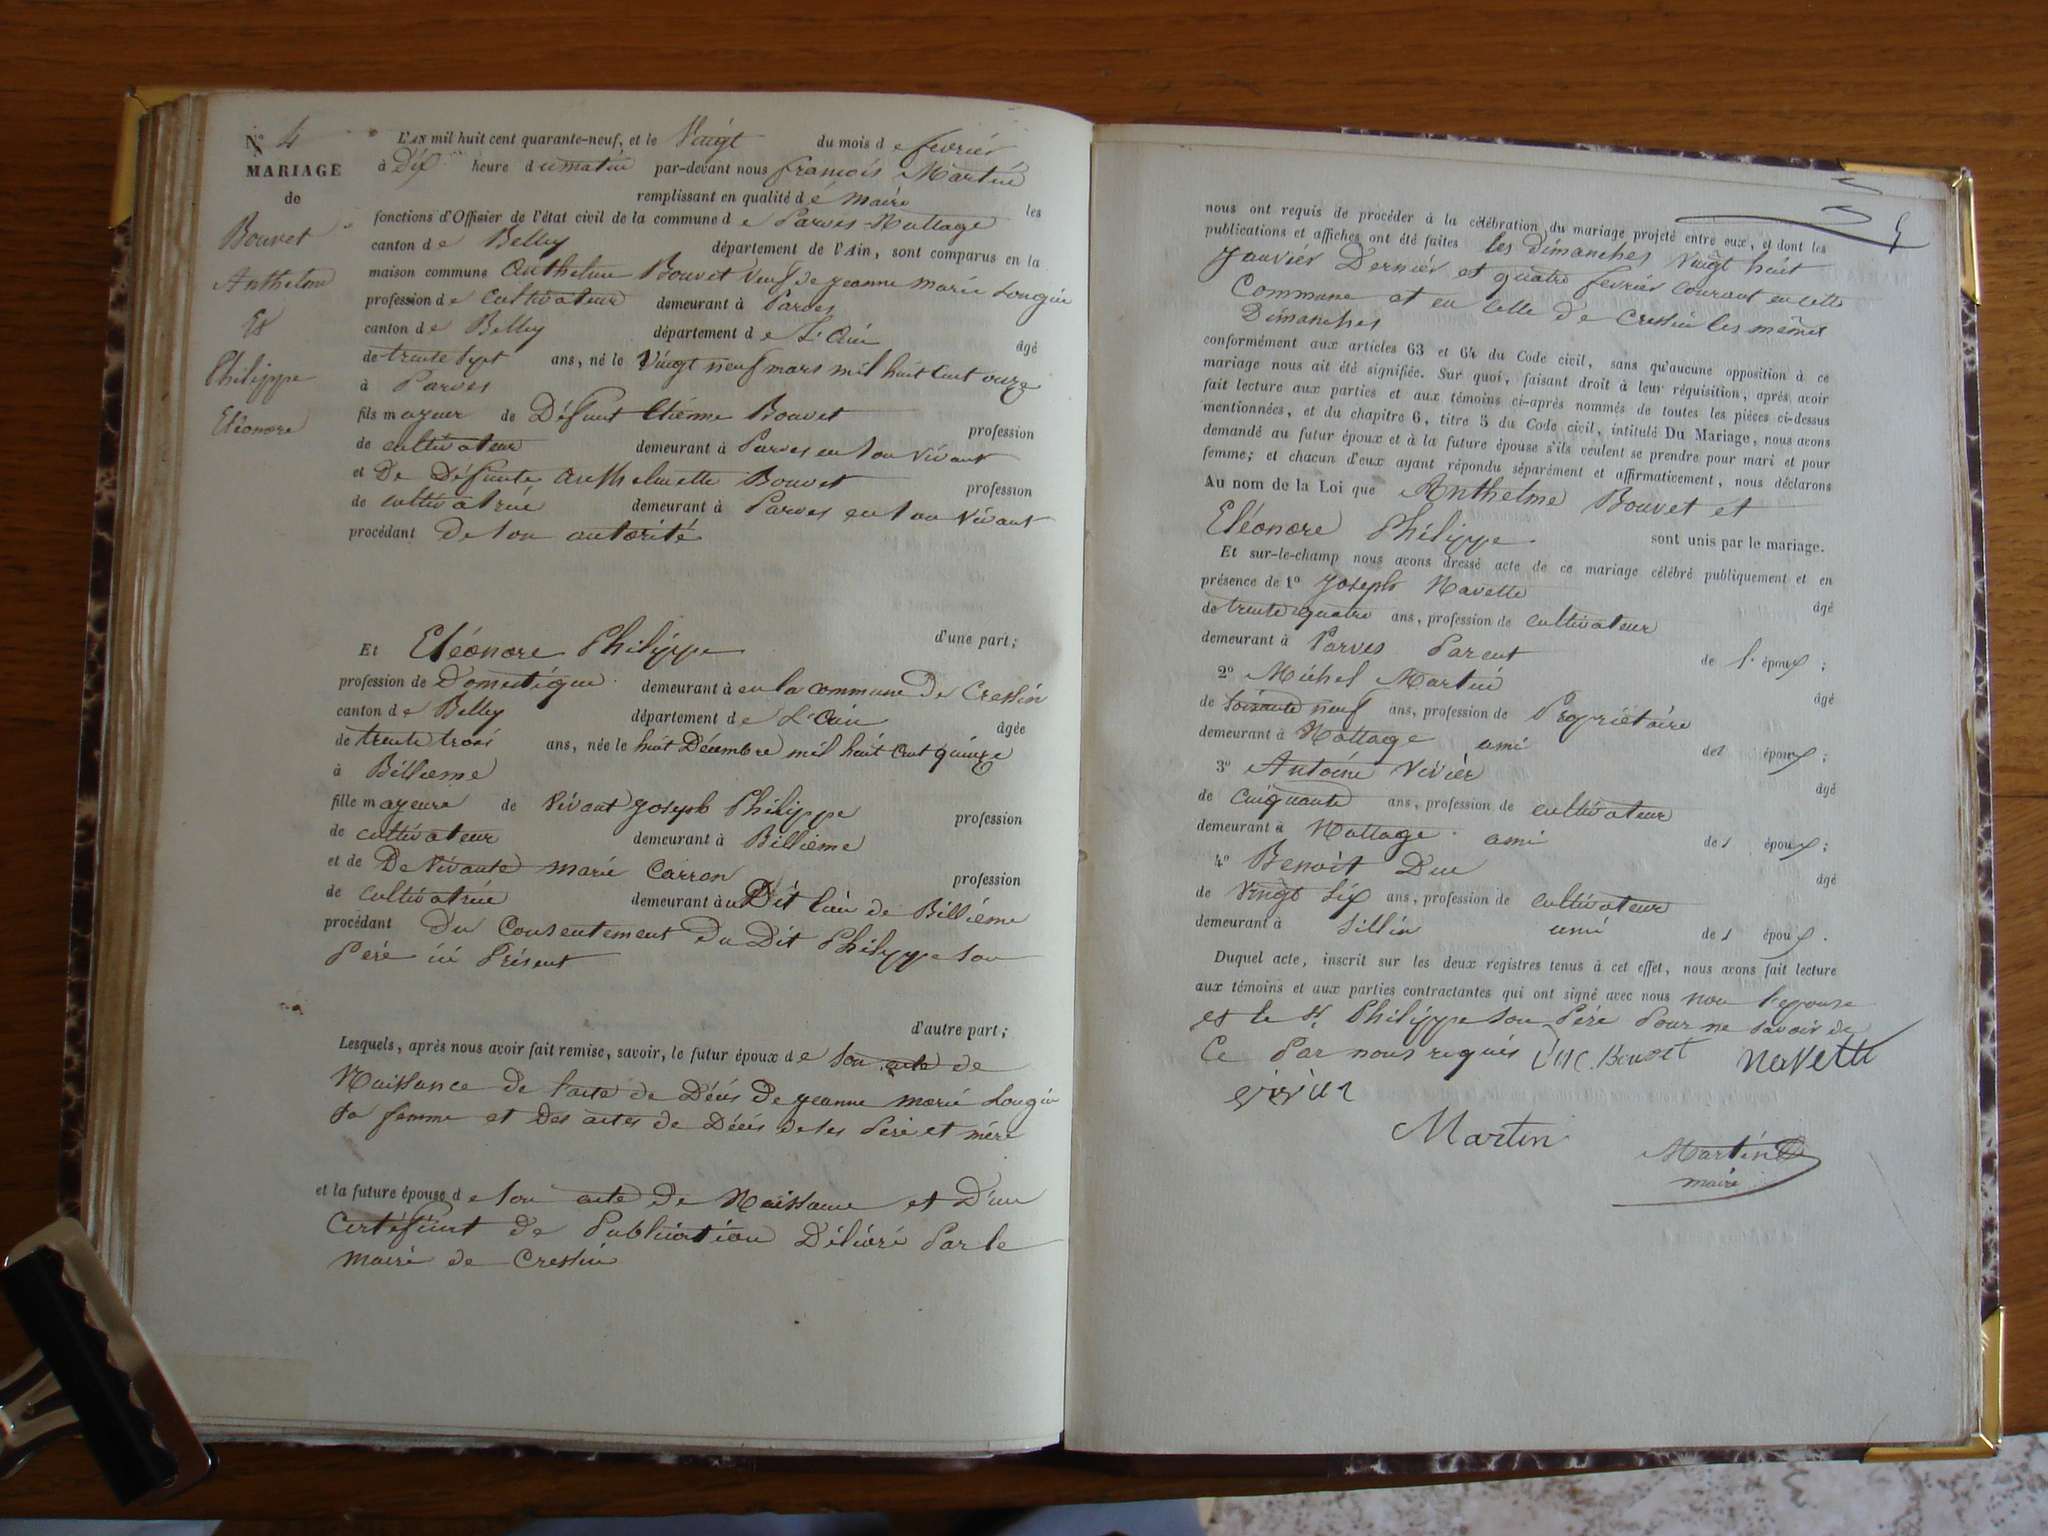 N° 4
MARIAGE
de
Bouvet
Anthelme
Et
Philippe
Eléonore
L'AN mil huit cent quarante-neuf, et le Vingt du mois de fevrier
à Dix heure du matin par-devant nous francois Martin
remplissant en qualité de maire les
fonctions d'Officier de l'état civil de la commune de Parves-Nattage
canton de Belley département de l'Ain, sont comparus en la
maison commune Anthelme Bouvet Veuf de jeanne marie Longin
profession de cultivateur demeurant à Parves
canton de Belley département de L'Ain âgé
de trente sept ans, né le Vingt neuf mars mil huit Cent onze
à Parves
fils majeur de Défunt Etienne Bouvet profession
de cultivateur demeurant à Parves en son Vivant
et De Défunte Anthelmette Bouvet profession
de cultivatrice demeurant à Parves en son Vivant
procédant De son autorité
d'une part;
Et Eléonore Philippe
profession de Domestique demeurant à en la commune De Cressin
canton de Belley département de L'Ain âgée
de trente trois ans, née le huit Décembre mil huit Cent quinze
à Billieme
fille majeure de Vivant joseph Philippe profession
de cultivateur demeurant à Billieme
et de De Vivante marie Carron profession
de cultivatrice demeurant au Dit lieu de Billième
procédant Du Consentement Du Dit Philippe son
Père ici Présent
d'autre part;
Lesquels, après nous avoir fait remise, savoir, le futur époux de son acte de
Naissance de l'acte de Décès De jeanne marie Longin
sa femme et Des actes de Décès de ses Père et mère
et la future épouse de son acte de Naissance et D'un
Certificat De Publication Délivré Par le
maire de Cressin
nous ont requis de procéder à la célébration du mariage projeté entre eux, et dont les
publications et affiches ont été faites les dimanches Vingt huit
janvier Dernier et quatre fevrier courant en cette
Commune et en celle De Cressin les mêmes
Dimanches
conformément aux articles 63 et 64 du Code civil, sans qu'aucune opposition à ce
mariage nous ait été signifiée. Sur quoi, faisant droit à leur réquisition, après avoir
fait lecture aux parties et aux témoins ci-après nommés de toutes les pièces ci-dessus
mentionnées, et du chapitre 6, titre 5 du Code civil, intitulé Du Mariage, nous avons
demandé au futur époux et à la future épouse s'ils veulent se prendre pour mari et pour
femme; et chacun d'eux ayant répondu séparément et affirmativement, nous déclarons
Au nom de la Loi que Anthelme Bouvet et
Eléonore Philippe sont unis par le mariage.
Et sur-le-champ nous avons dressé acte de ce mariage célébré publiquement et en
présence de 1° joseph Navette âgé
de trente quatre ans, profession de cultivateur
demeurant à Parves Parent de l'époux;
2° Michel Martin âgé
de soixante neuf ans, profession de Propriétaire
demeurant à Nattage ami de l époux;
3° Antoine Vivier âgé
de Cinquante ans, profession de cultivateur
demeurant à Nattage ami de l époux;
4° Benoit Duc âgé
de Vingt Six ans, profession de cultivateur
demeurant à Sillin ami de l époux.
Duquel acte, inscrit sur les deux registres tenus à cet effet, nous avons fait lecture
aux témoins et aux parties contractantes qui ont signé avec nous non l'epouse
et le St Philippe son Père Pour ne savoir de
Ce Par nous requis Duc. Benoit Navette
vivier
Martin
Martin
maire